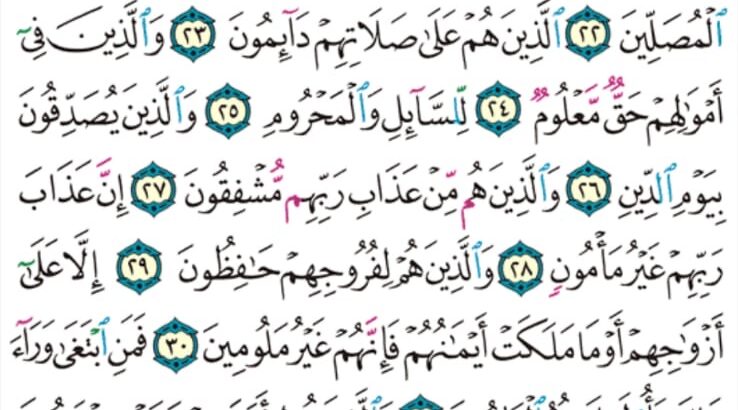 ٱلْمُصَلِّينَ ٢٢ ٱلَّذِينَ هُمْ عَلَىٰ صَلَاتِهِمْ دَآئِمُونَ ٢٣ وَٱلَّذِينَ فِىٓ
أَمْوَٰلِهِمْ حَقٌّ مَّعْلُومٌ ٢٤ لِّلسَّآئِلِ وَٱلْمَحْرُومِ ٢٥ وَٱلَّذِينَ يُصَدِّقُونَ
بِيَوْمِ ٱلدِّينِ ٢٦ وَٱلَّذِينَ هُم مِّنْ عَذَابِ رَبِّهِم مُّشْفِقُونَ ٢٧ إِنَّ عَذَابَ
رَبِّهِمْ غَيْرُ مَأْمُونٍ ٢٨ وَٱلَّذِينَ هُمْ لِفُرُوجِهِمْ حَٰفِظُونَ ٢٩ إِلَّا عَلَىٰٓ
أَزْوَٰجِهِمْ أَوْ مَا مَلَكَتْ أَيْمَٰنُهُمْ فَإِنَّهُمْ غَيْرُ مَلُومِينَ ٣٠ فَمَنِ ٱبْتَغَىٰ وَرَآءَ